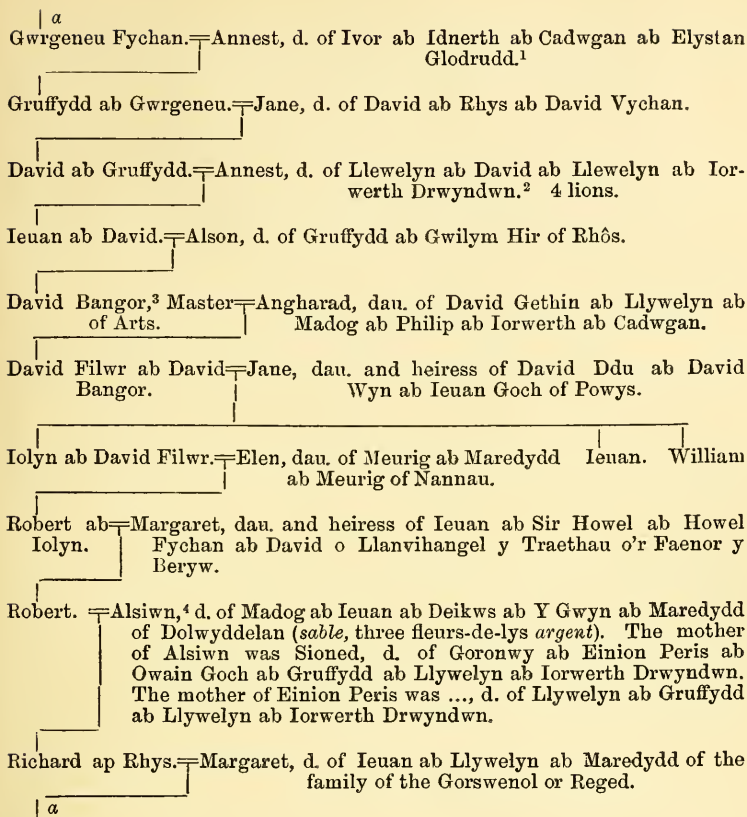 a
Gwrgeneu Fychan.=Annest, d. of Ivor ab Idnerth ab Cadwgan ab Elystan
Glodrudd.¹
Gruffydd ab Gwrgeneu.=Jane, d. of David ab Rhys ab David Vychan.
David ab Gruffydd.=Annest, d. of Llewelyn ab David ab Llewelyn ab Ior-
werth Drwyndwn.² 4 lions.
Ieuan ab David.=Alson, d. of Gruffydd ab Gwilym Hir of Rhôs.
David Bangor,³ Master=Angharad, dau. of David Gethin ab Llywelyn ab
of Arts. Madog ab Philip ab Iorwerth ab Cadwgan.
David Filwr ab David=Jane, dau. and heiress of David Ddu ab David
Bangor. Wyn ab Ieuan Goch of Powys.
Iolyn ab David Filwr.=Elen, dau. of Meurig ab Maredydd Ieuan. William
ab Meurig of Nannau.
Robert ab=Margaret, dau. and heiress of Ieuan ab Sir Howel ab Howel
Iolyn. Fychan ab David o Llanvihangel y Traethau o'r Faenor y
Beryw.
Robert. =Alsiwn,⁴ d. of Madog ab Ieuan ab Deikws ab Y Gwyn ab Maredydd
of Dolwyddelan (sable, three fleurs-de-lys argent). The mother
of Alsiwn was Sioned, d. of Goronwy ab Einion Peris ab
Owain Goch ab Gruffydd ab Llywelyn ab Iorwerth Drwyndwn.
The mother of Einion Peris was ..., d. of Llywelyn ab Gruffydd
ab Llywelyn ab Iorwerth Drwyndwn.
Richard ap Rhys.=Margaret, d. of Ieuan ab Llywelyn ab Maredydd of the
family of the Gorswenol or Reged.
a